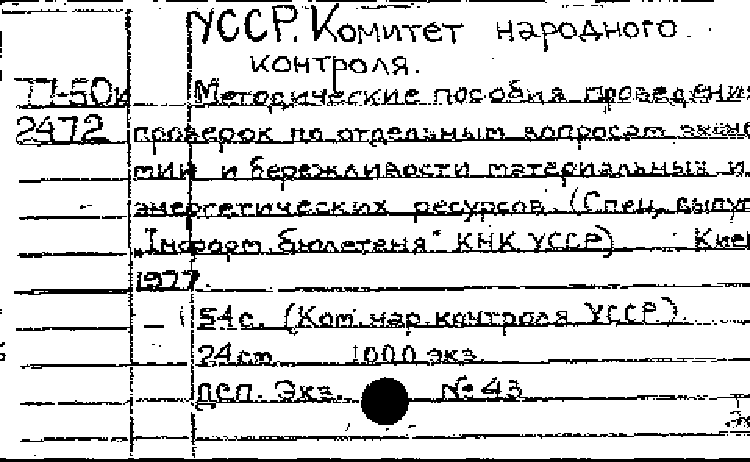 УССР. Комитет народного
контроля.
77-50к Методические пособия проведения
2472 проверок по отдельным вопросам эконо
мии и бережливости материальных и
энергетических ресурсов. (Спец. выпус
„Інформ. бюлетеня" КНК УССР) Киев
1977.
54с. (Ком. нар. контроля УССР).
24см 1000 экз.
ДСП. Экз. № 43